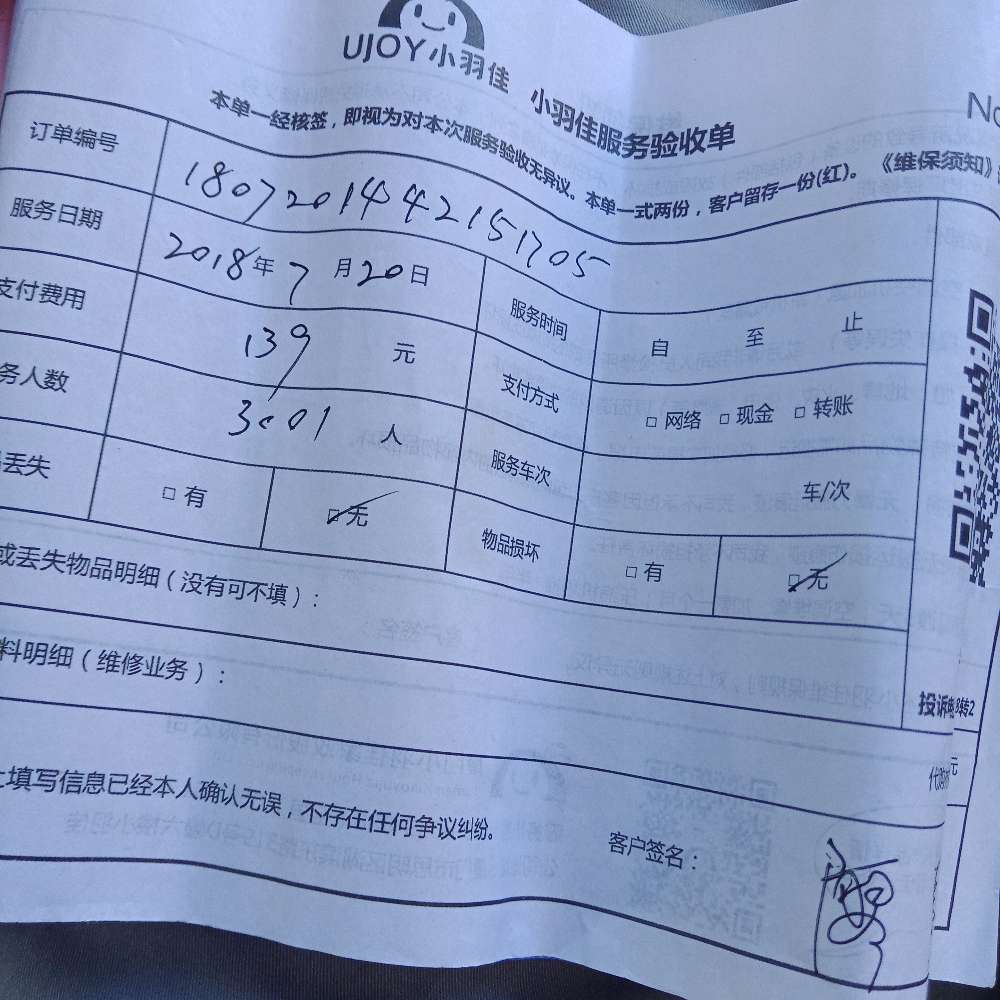 UJOY小羽佳 小羽佳服务验收单
No
本单一经核签，即视为对本次服务验收无异议。本单一式两份，客户留存一份(红)。《维保须知》
订单编号 1807201442151705
服务日期 2018年7月20日 服务时间 自 至 止
支付费用 139 元 支付方式 □网络 □现金 □转账
务人数 3001 人 服务车次 车/次
丢失 □有 □无 物品损坏 □有 □无
或丢失物品明细（没有可不填）：
料明细（维修业务）：
投诉
转2
元
填写信息已经本人确认无误，不存在任何争议纠纷。 客户签名：